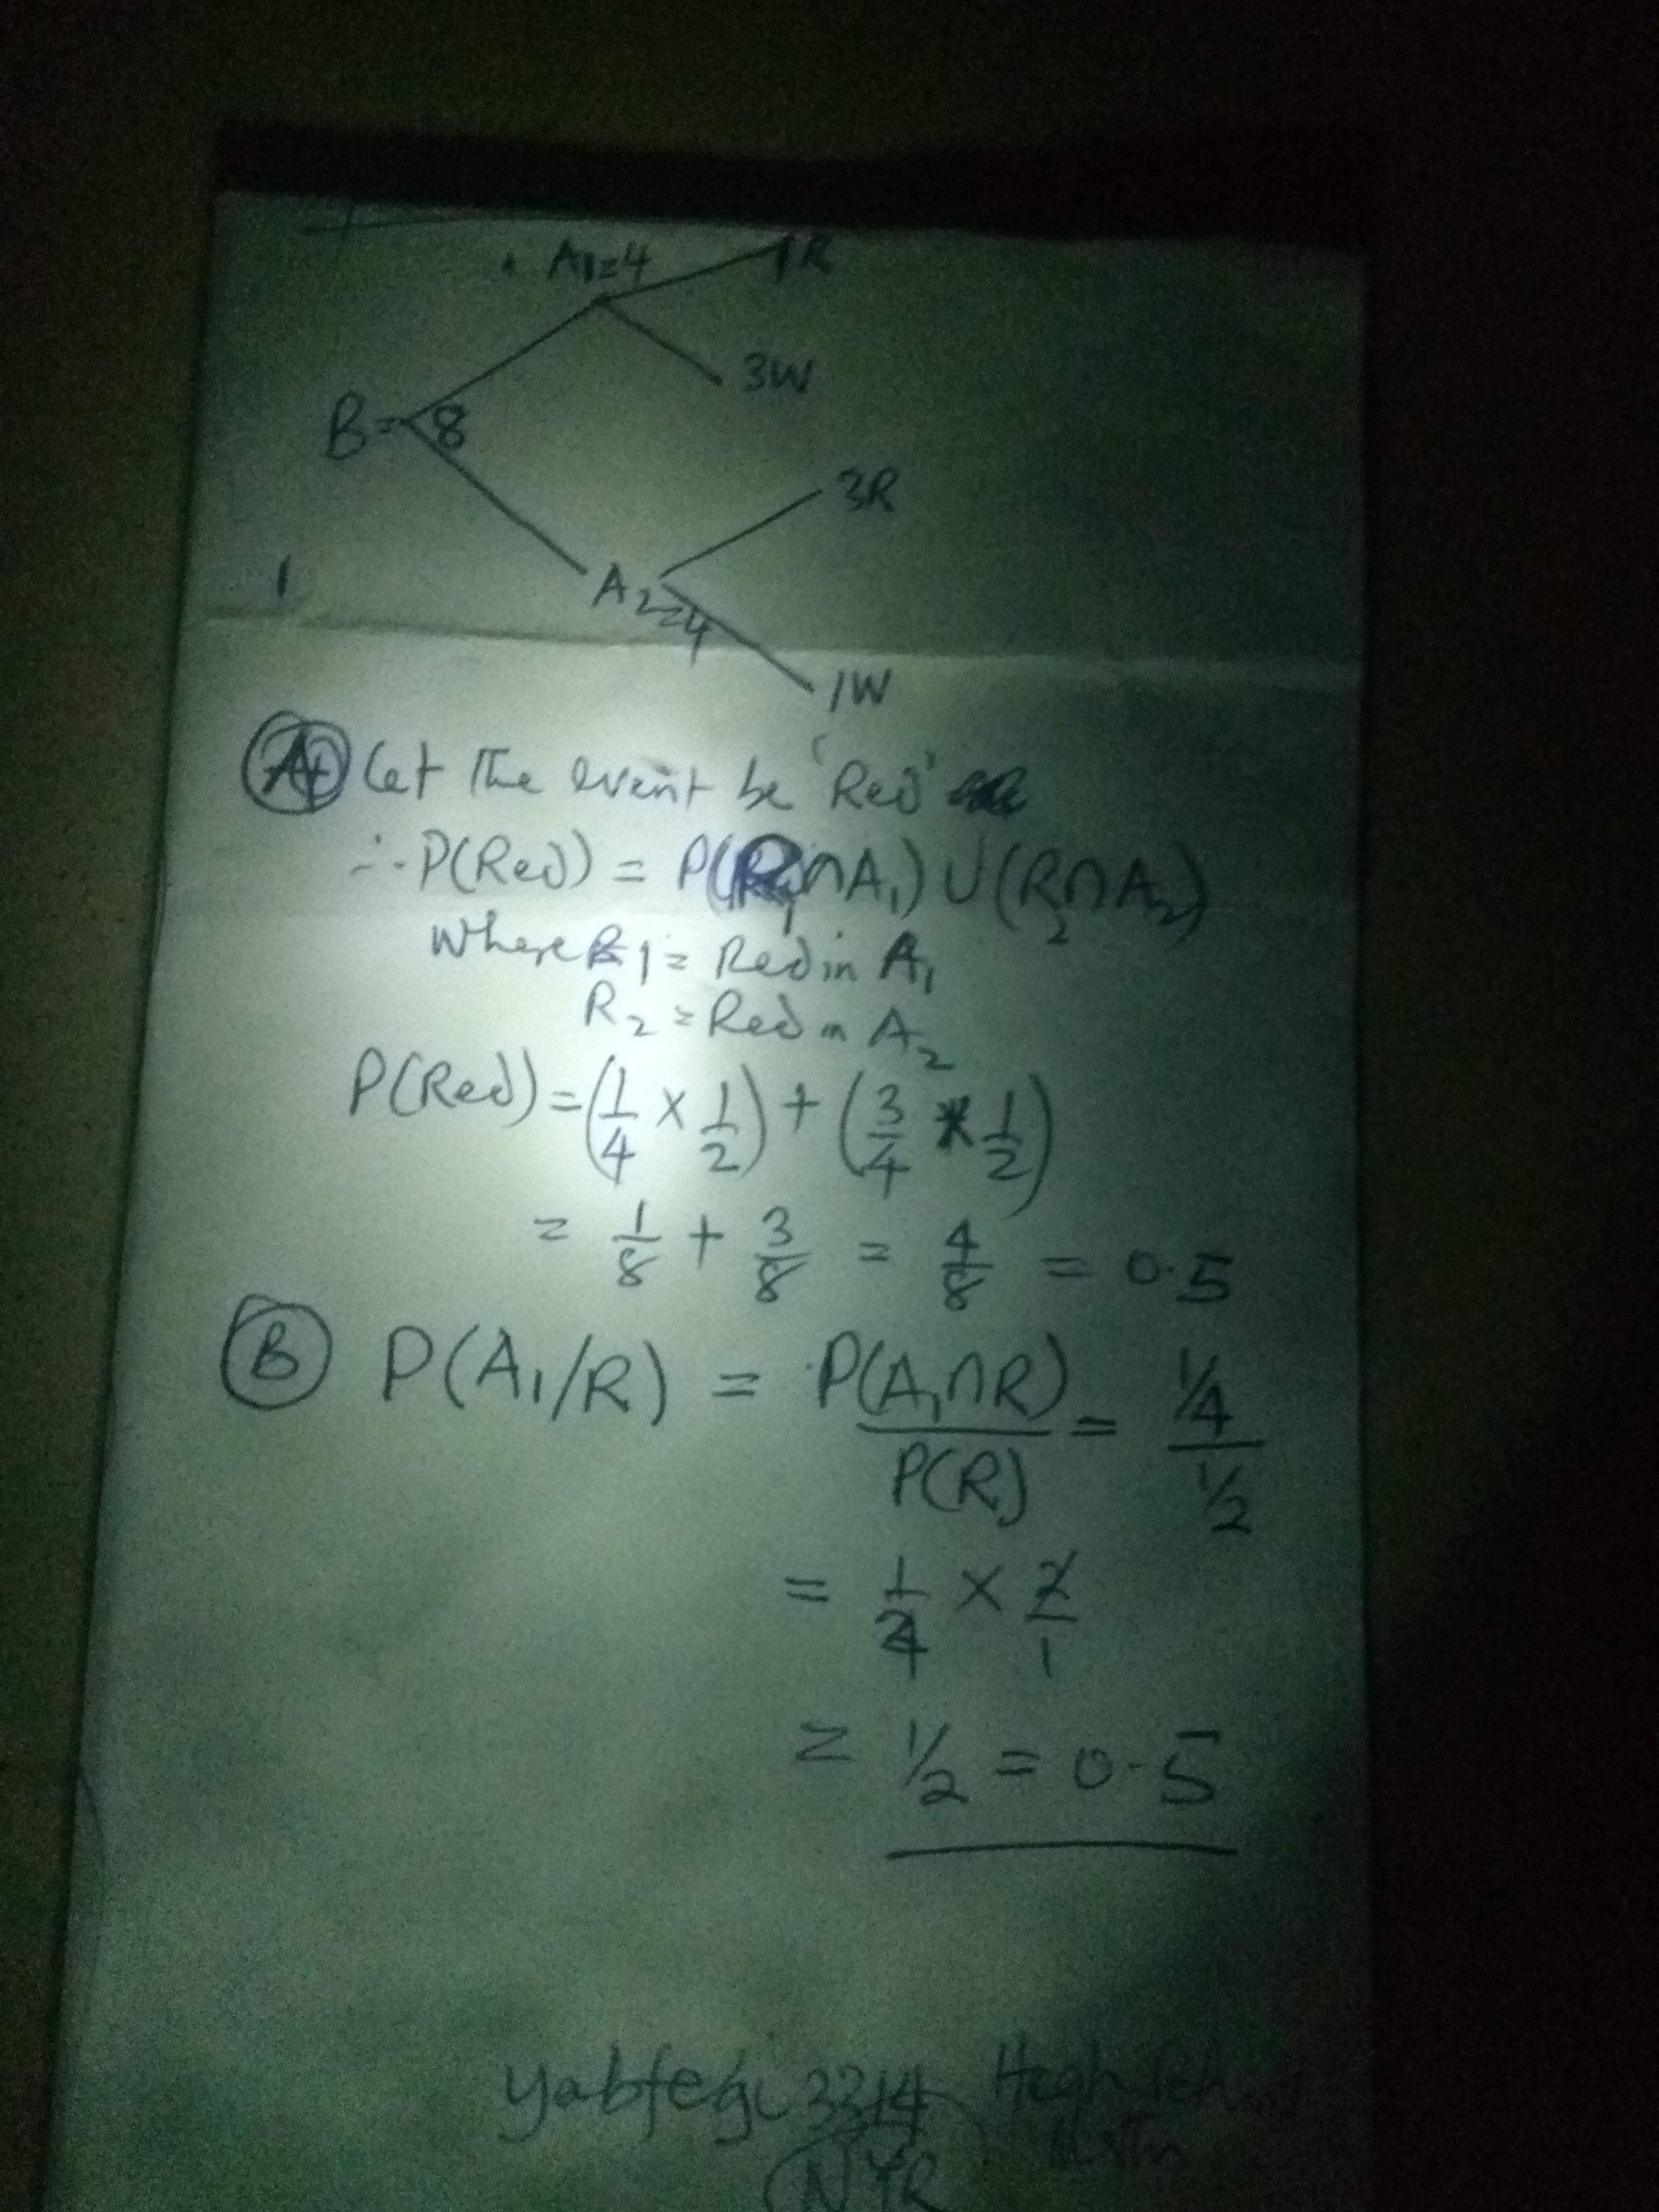 A1=4
1R
3W
B=
8
3R
1
A2=4
1W
A Let the event be 'Red'
∴ P(Red) = P(R1∩A1) ∪ (R2∩A2)
Where R1 = Red in A1
R2 = Red in A2
P(Red) = (1/4 × 1/2) + (3/4 * 1/2)
= 1/8 + 3/8 = 4/8 = 0.5
B P(A1/R) = P(A1∩R)/P(R) = 1/4 / 1/2
= 1/4 × 2/1
= 1/2 = 0.5
yabfegi 3314 High
NYR